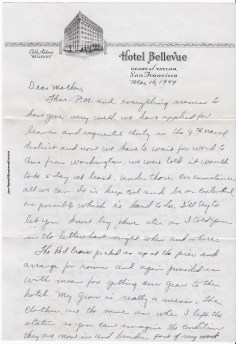 Cable Address
"BELLEVUE"
Hotel Bellevue
GEARY AT TAYLOR
San Francisco
Mar 16, 1944
Dear Mother,
Thur. P.M. and everything seems to
have gone very well. we have applied for
leave and requested duty in the 9th Naval
District and now we have to wait for word to
come from Washington. we were told it would
take days at least. under those circumstances
all we can do is keep cool and be as collected
as possible which is hard to do. I'll try to
let you know by phone also as I told you
in the letter last night when and where.
The Red Cross picked us up at the pier and
arrange for rooms and again provided us
with means for getting our gear to the
hotel. My gear is really a mess. The
clothes are the same as when I left the
states so you can imagine the condition
they are now in and besides part of my